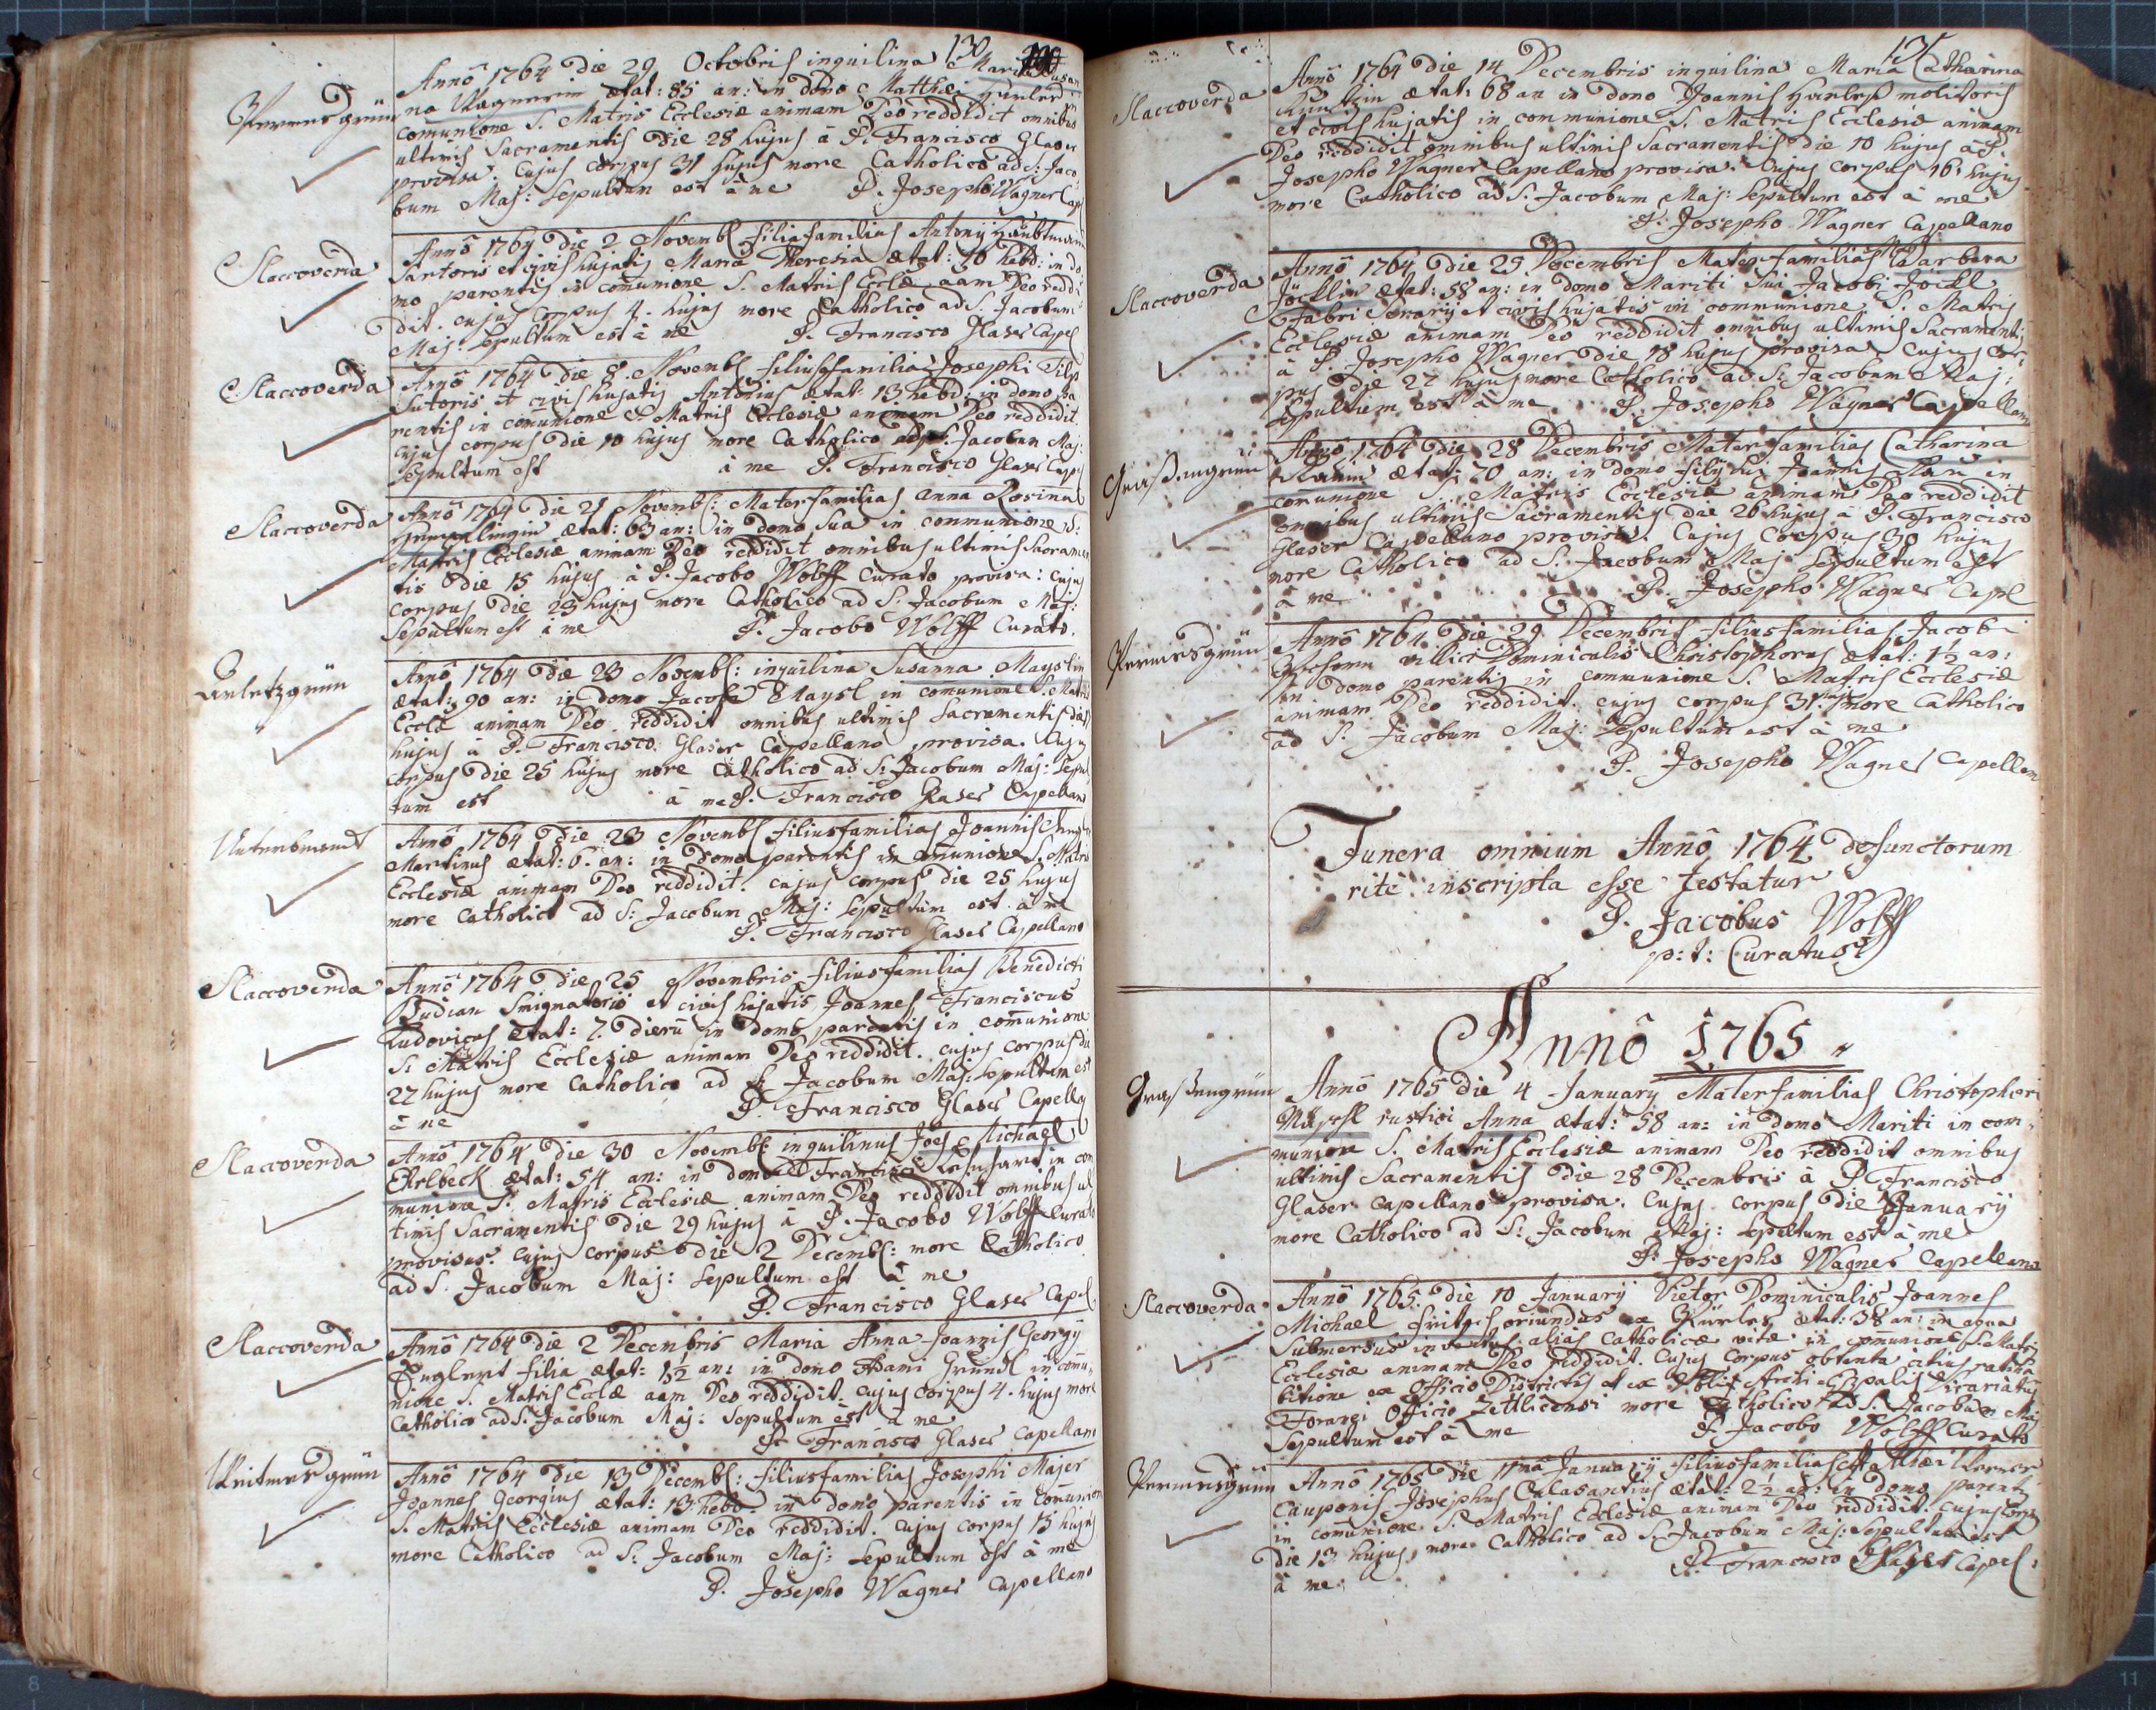 130
Anno 1764 die 29 Octobris inquilina Maria Susan
Permesgrün
na Wagnerin ætat: 85 an: in domo Matthæi
comunione S. Matris Ecclesiæ animam Deo reddidit omnibus
ultimis Sacramentis die 28 hujus à P. Francisco Glaser
provisa: Cujus corpus 31 hujus more Catholico ad S: Jaco
bum Maj: Sepultum est à me P. Josepho Wagner Cap
Slaccoverda
Anno 1764 die 2 Novemb: filia familias Antonij
Sartoris et civis hujatis Maria Theresia ætat: 10 hebd: in do
mo parentis in comunione S. Matris Eccle aam Deo reddi
dit. cujus corpus 4. hujus more Catholico ad S. Jacobum
Maj: Sepultum est à me P. Francisco Glaser Capel
Slaccoverda
Anno 1764 die 8 Novemb: filiusfamilias Josephi
Sutoris et civis hujatis Antonius ætat: 13 hebd: in domo pa
rentis in comunione S. Matris Ecclesiæ animam Deo reddidit.
cujus corpus die 10 hujus more Catholico ad S. Jacobum Maj:
Sepultum est à me P. Francisco Glaser Cap
Slaccoverda
Anno 1764 die 21 Novemb: Materfamilias Anna Rosina
ætat: 63 an: in domo sua in communione S:
Matris Ecclesiæ animam Deo reddidit omnibus ultimis Sacramen
tis die 15 hujus à P. Jacobo Wolff Curato provisa: cujus
corpus die 23 hujus more Catholico ad S. Jacobum Maj:
Sepultum est à me P. Jacobo Wolff Curato.
Anno 1764 die 23 Novemb: inquilina Susanna Mayslin
ætat: 90 an: in domo Jacobi Maysl in comunione S. Matris
Eccle animam Deo reddidit omnibus ultimis Sacramentis die
hujus a P. Francisco Glaser Capellano provisa. Cujus
corpus die 25 hujus more Catholico ad S: Jacobum Maj: Sepul
tum est à me P. Francisco Glaser Capellano
Anno 1764 die 23 Novemb: filiusfamilias Joannis
Martinus ætat: 6. an: in domo parentis in comunione S. Matris
Ecclesiæ animam Deo reddidit. cujus corpus die 25 hujus
more Catholico ad S: Jacobum Maj: Sepultum est à me
P. Francisco Glaser Capellano
Slaccoverda
Anno 1764 die 25 Novembris filiusfamilias Benedicti
Budian Smigmatoris et civis hujatis Joannes Franciscus
Ludovicus ætat: 7. dieru in domo parentis in comunione
S: Matris Ecclesiæ animam Deo reddidit. cujus corpus die
27 hujus more Catholico ad S. Jacobum Maj: Sepultum est
à me P. Francisco Glaser Capella
Slaccoverda
Anno 1764 die 30 Novemb: inquilinus Joes Michael
Erlbeck ætat: 54 an: in domo Francisci in com
munione S: Matris Ecclesiæ animam Deo reddidit omnibus ul
timis Sacramentis die 29 hujus à P. Jacobo Wolff Curato
provisus: cujus corpus die 2 Decemb: more Catholico
ad S. Jacobum Maj: Sepultum est à me
P. Francisco Glaser Capel.
Slaccoverda
Anno 1764 die 2 Decembris Maria Anna Joannis Georgij
filia ætat: 1½ an: in domo Gründl in comu
nione S. Matris Eccle aam Deo reddidit. cujus corpus 4. hujus more
Catholico ad S. Jacobum Maj: Sepultum est à me
P. Francisco Glaser Capellano
Anno 1764 die 13 Decemb: filiusfamilias Josephi Majer
Joannes Georgius ætat: 13 hebd: in domo parentis in Comunione
S. Matris Ecclesiæ animam Deo reddidit. cujus corpus 15 hujus
more Catholico ad S: Jacobum Maj: Sepultum est à me
P. Josepho Wagner Capellano
131
Slaccoverda
Anno 1764 die 14 Decembris inquilina Maria Catharina
ætat: 68 an in domo Joannis molitoris
et civis hujatis in communione S. Matris Ecclesiæ animam
Deo reddidit omnibus ultimis Sacramentis die 10 hujus à P.
Josepho Wagner Capellano provisa: Cujus corpus 16 hujus
more Catholico ad S. Jacobum Maj: Sepultum est à me
P. Josepho Wagner Capellano
Slaccoverda
Anno 1764 die 25 Decembris Materfamilias Barbara
Jöcklin ætat: 58 an: in domo Mariti sui Jacobi Jöckl
Fabri Serarij et civis hujatis in communione S. Matris
Ecclesiæ animam Deo reddidit omnibus ultimis Sacramentis
à P. Josepho Wagner die 18 hujus provisa. Cujus cor
pus die 27 hujus more Catholico ad S: Jacobum Maj:
Sepultum est à me P. Josepho Wagner Capellano
Grasengrün
Anno 1764 die 28 Decembris Materfamilias Catharina
ætat: 70 an: in domo filij sui Joannis in
comunione S. Matris Ecclesiæ animam Deo reddidit
omnibus ultimis Sacramentis die 26 hujus à P. Francisco
Glaser Capellano provisa. Cujus corpus 30 hujus
more Catholico ad S. Jacobum Maj Sepultum est
à me P. Josepho Wagner Capl
Permesgrün
Anno 1764 die 29 Decembris filiusfamilias Jacobi
villici Dominicalis Christophorus ætat: 1½ an:
in domo parentis in communione S. Matris Ecclesiæ
animam Deo reddidit. cujus corpus 31 huj: more Catholico
ad S. Jacobum Maj: Sepultum est à me
P. Josepho Wagner Capellano
Funera omnium Anno 1764 defunctorum
rite inscripta esse testatur
P. Jacobus Wolff
p:t: Curatus
Anno 1765
Grasengrün
Anno 1765 die 4 January Materfamilias Christophori
rustici Anna ætat: 58 an: in domo Mariti in com
munione S. Matris Ecclesiæ animam Deo reddidit omnibus
ultimis Sacramentis die 28 Decembris à P. Francisco
Glaser Capellano provisa. Cujus corpus die January
more Catholico ad S: Jacobum Maj: Sepultum est à me
P. Josepho Wagner Capellano
Slaccoverda
Anno 1765 die 10 January Vietor Dominicalis Joannes
Michael Fritsch oriundus ex ætat: 38 an: in aqua
Submersus inventus alias Catholicæ vitæ in comunione S. Matris
Ecclesiæ animam Deo reddidit. Cujus corpus obtenta
bitione ex Officio Districtus et ex Archi-Eppalis Vicariatus
Foranei Officio Zettlicensi more Catholico ad S. Jacobum Maj
Sepultum est à me P. Jacobo Wolff Curato
Permesgrün
Anno 1765 die 11ma January filiusfamilias Matthæi
Cauponis Josephus Calasantius ætat: 2½ an: in domo parent
in comunione S. Matris Ecclesiæ animam Deo reddidit. cujus corp
die 13 hujus more Catholico ad S. Jacobum Maj: Sepultum est
à me P. Francisco Glaser Capel:
8
11